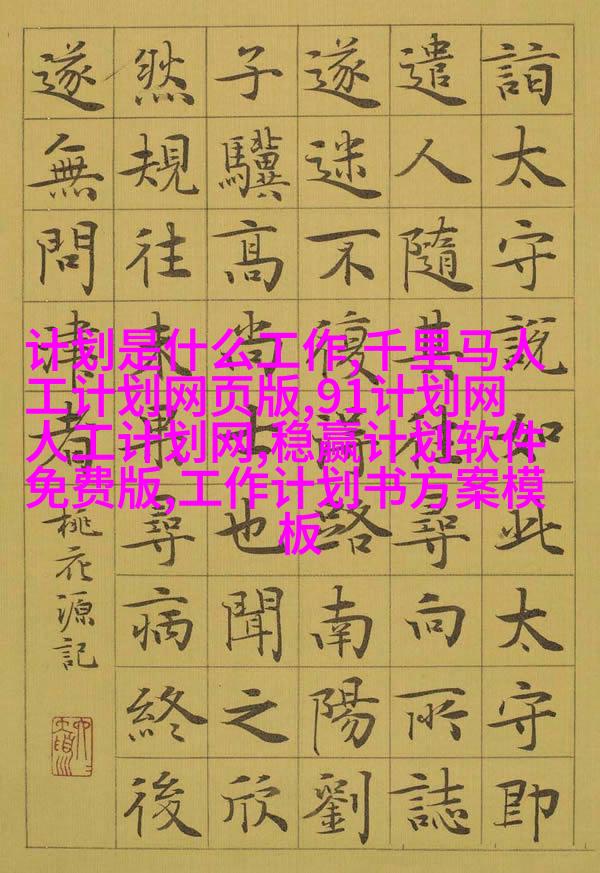 詣太守說如此太守即
遣人隨其往尋向所誌
遂迷不復得路南陽劉
子驥高尚士也聞之欣
然規往未果尋病終後
遂無問津者
桃花源記
计划是什么工作,千里马人
工计划网页版,91计划网
人工计划网,稳赢计划软件
免费版,工作计划书方案模
板